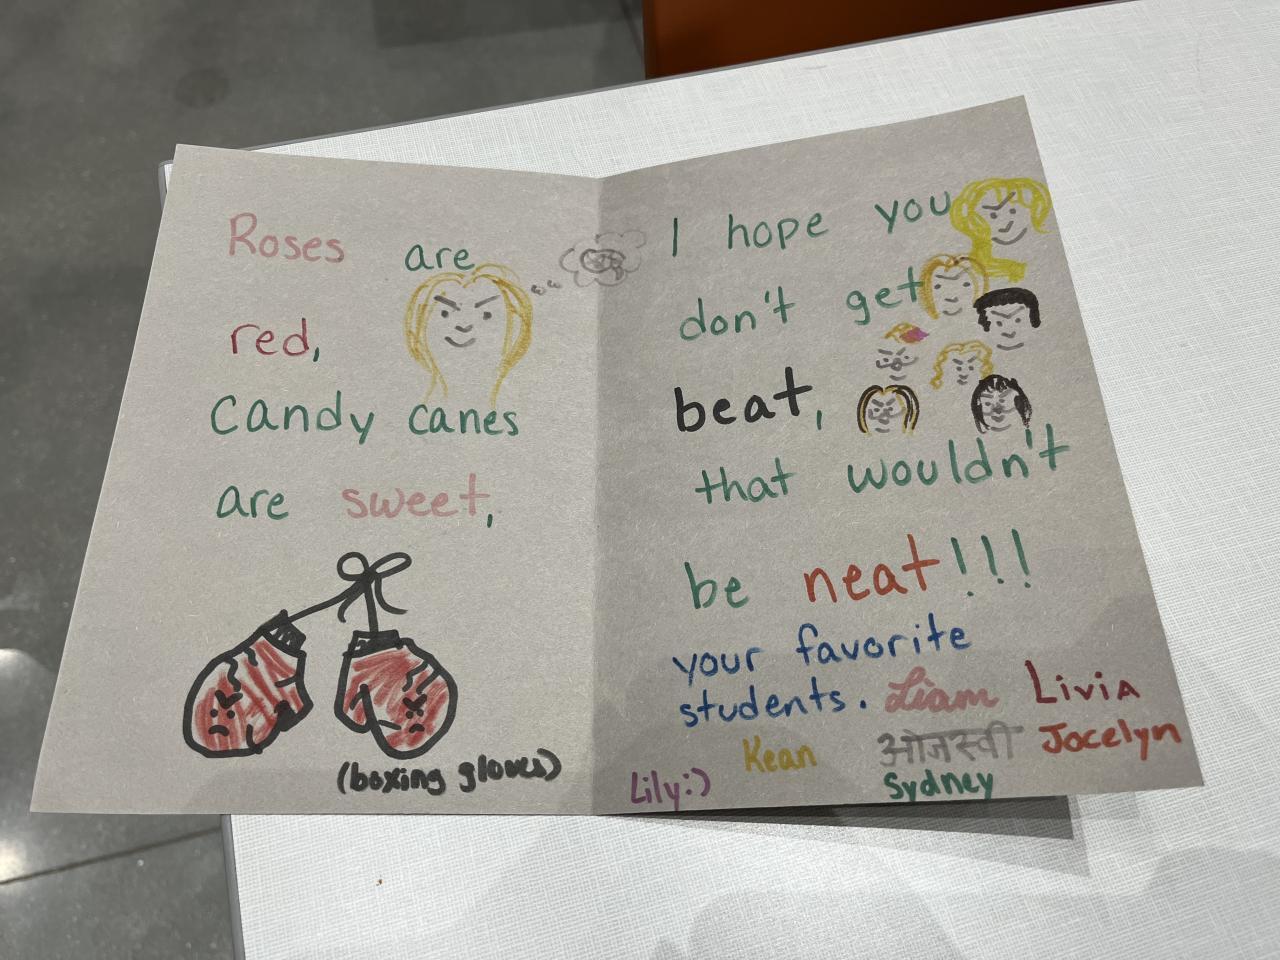 Roses are
red,
Candy canes
are sweet,
(boxing gloves)
I hope you
don't get
beat,
that wouldn't
be neat!!!
your favorite
students. Liam Livia
Kean ओजस्वी Jocelyn
Lily:) Sydney